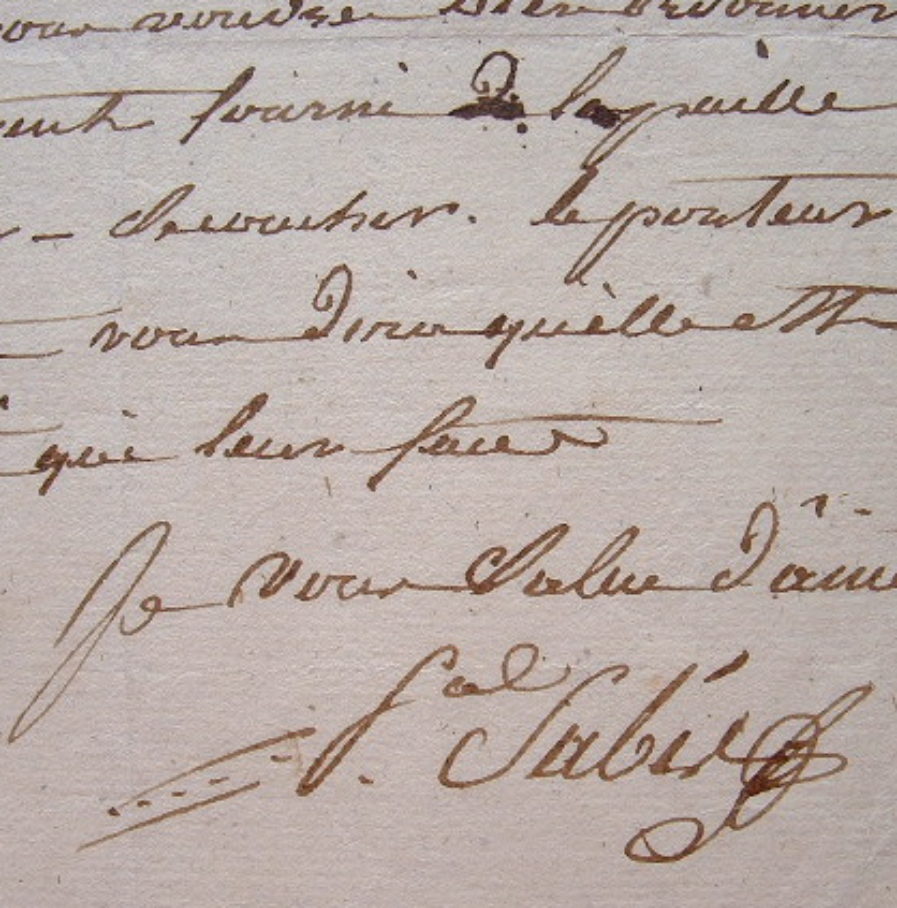 vous voudrez bien ordonner
fourni De la paille
Se coucher. le porteur
vous Dira qu'elle est
qui leur faut
Je vous Salue D'ami
Sabié